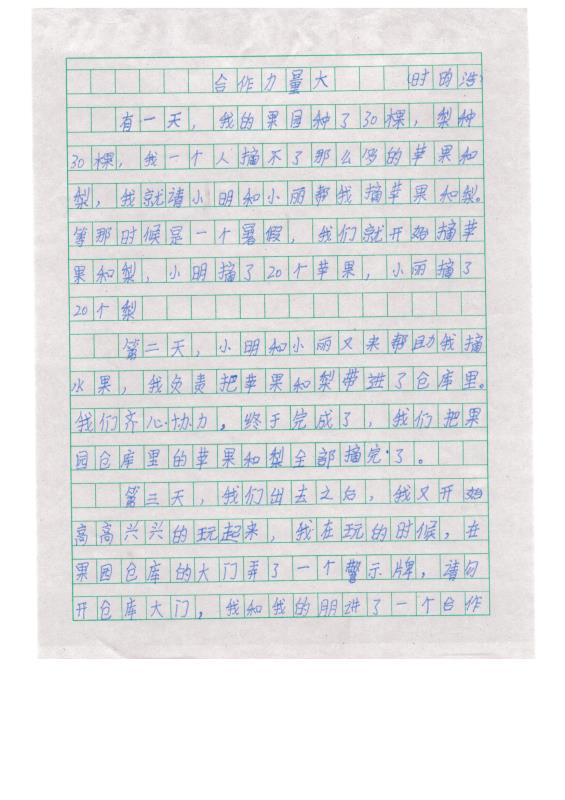 合作力量大 (时昀浩)
有一天，我的果园种了30棵，梨种
30棵，我一个人摘不了那么多的苹果和
梨，我就请小明和小丽帮我摘苹果和梨。
等那时候是一个暑假，我们就开始摘苹
果和梨，小明摘了20个苹果，小丽摘了
20个梨
第二天，小明和小丽又来帮助我摘
水果，我负责把苹果和梨带进了仓库里。
我们齐心协力。终于完成了，我们把果
园仓库里的苹果和梨全部摘完了。
第三天，我们出去之后，我又开始
高高兴兴的玩起来，我在玩的时候，在
果园仓库的大门弄了一个警示牌，请勿
开仓库大门，我和我的朋进了一个合作